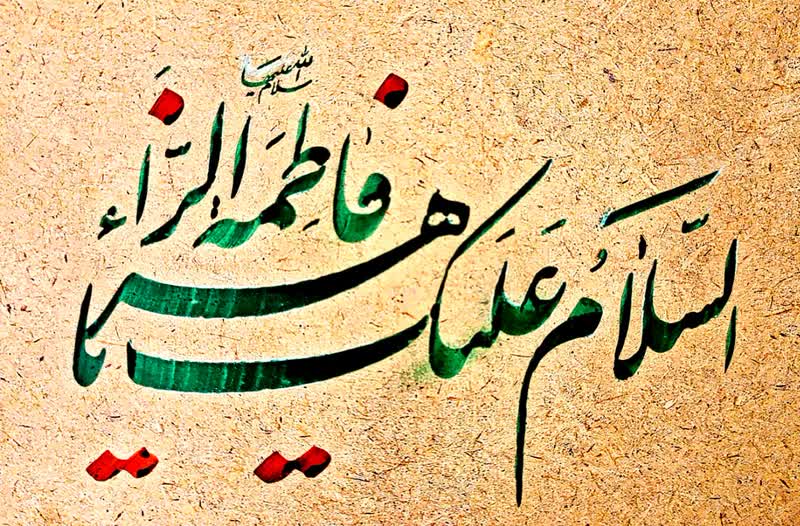 السَّلاٰمُ عَلَیک یا
فاطِمَه الزَّهراء
سلام الله علیها